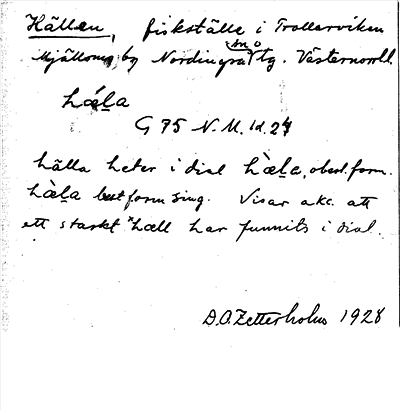 Hällan, fiskställe i Trollarviken
Mjällom, by Nordingrå sn tg. Västernorrl.
hǽḷa
G 75 N. M. 1d. 24
hälla heter i dial hæ̀ḷa, obest. form.
hæ̀ḷa best form sing. Visar akc. att
ett starkt *hæll har funnits i dial.
D.O. Zetterholm 1928